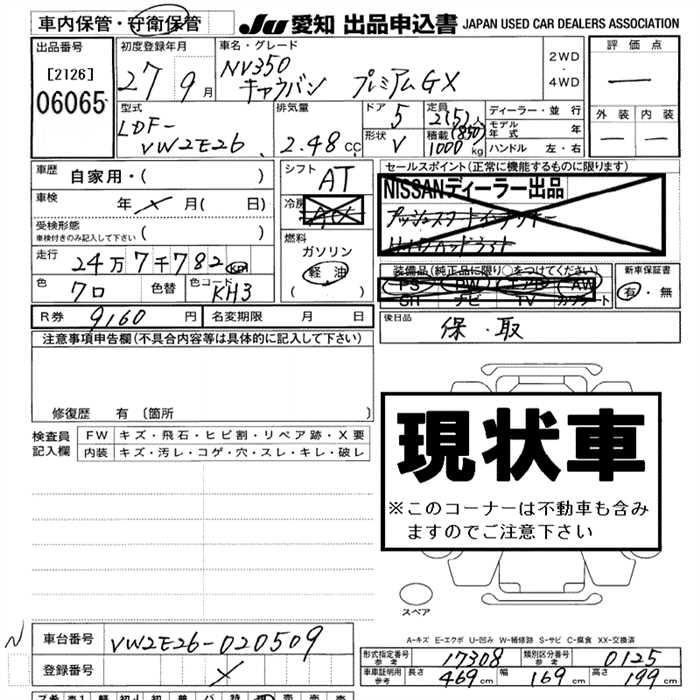 車内保管・守衛保管
JU 愛知 出品申込書 JAPAN USED CAR DEALERS ASSOCIATION
出品番号 [2126] 06065
初度登録年月 27 9月
車名・グレード NV350 キャラバン プレミアムGX
2WD・4WD
評価点 —
外装 — 内装 —
型式 LDF-VW2E26
排気量 2.48 CC
ドア 5
形状 V
定員 2(5)人
積載 (850) 1000 kg
ディーラー・並行
モデル年式 年
ハンドル 左・右
車歴 自家用・( )
車検 年 × 月( 日)
受検形態 ( )
車検付きのみ記入して下さい
走行 24万7千782 km
色 クロ 色替 色コード KH3
シフト AT
冷房 AAC
燃料 ガソリン 軽油 ( )
セールスポイント(正常に機能するものに限ります)
NISSANディーラー出品
プッシュスタートインテリキー
装備品(純正品に限り○をつけてください)
PS PW エアB AW
SR ナビ TV カワシート
新車保証書 有・無
R券 9160 円 名変期限 月 日
後日品 保・取
注意事項申告欄(不具合内容等は具体的に記入して下さい)
修復歴 有 〔箇所 〕
検査員記入欄
FW キズ・飛石・ヒビ割・リペア跡・X要
内装 キズ・汚レ・コゲ・穴・スレ・キレ・破レ
現状車
※このコーナーは不動車も含み
ますのでご注意下さい
スペア
A-キズ E-エクボ U-凹み W-補修跡 S-サビ C-腐食 XX-交換済
N
車台番号 VW2E26-020509
登録番号 ×
形式指定番号 参考 17308 類別区分番号 参考 0125
車庫証明用 参考 長さ 469cm 幅 169cm 高さ 199cm